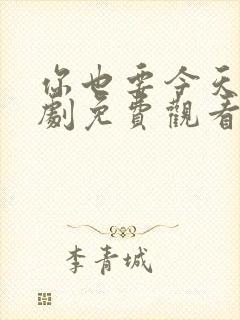 你也要今天
劇免費觀看
李青城